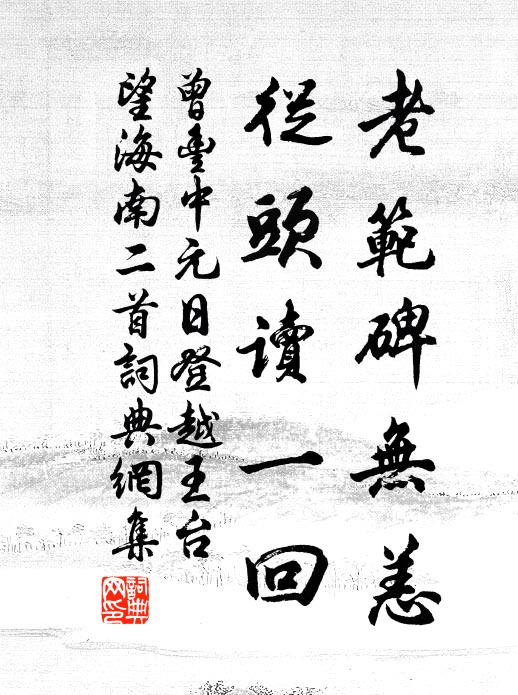 老範碑無恙
從頭讀一回
曾豐中元日登越王台
望海南二首詞典網集
詞典
网印